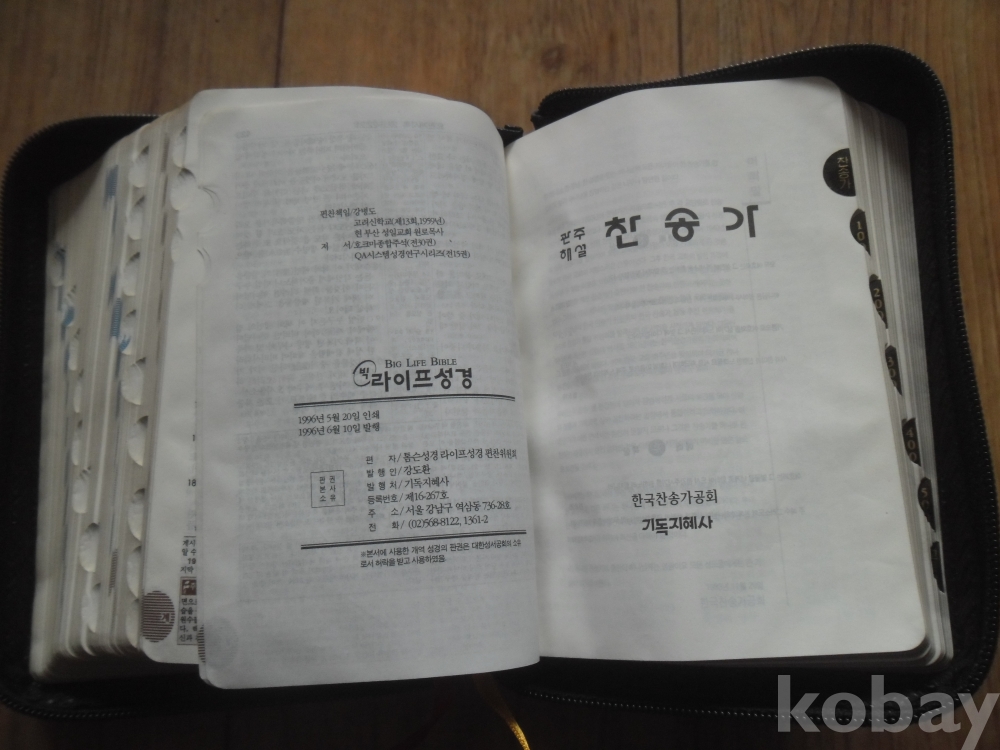 편찬책임/강병도
고려신학교(제13회, 1959년)
현 부산 성일교회 원로목사
저 서/호크마종합주석(전30권)
QA시스템성경연구시리즈(전15권)
BIG LIFE BIBLE
빅 라이프성경
1996년 5월 20일 인쇄
1996년 6월 10일 발행
판권
본사
소유
편 자/톰슨성경 라이프성경 편찬위원회
발행인/강도환
발행처/기독지혜사
등록번호/제16-267호
주 소/서울 강남구 역삼동 736-28호
전 화/(02)568-8122, 1361-2
※본서에 사용한 개역 성경의 판권은 대한성서공회의 소유
로서 허락을 받고 사용하였음.
관주
해설
찬송가
한국찬송가공회
기독지혜사
찬송가
kobay